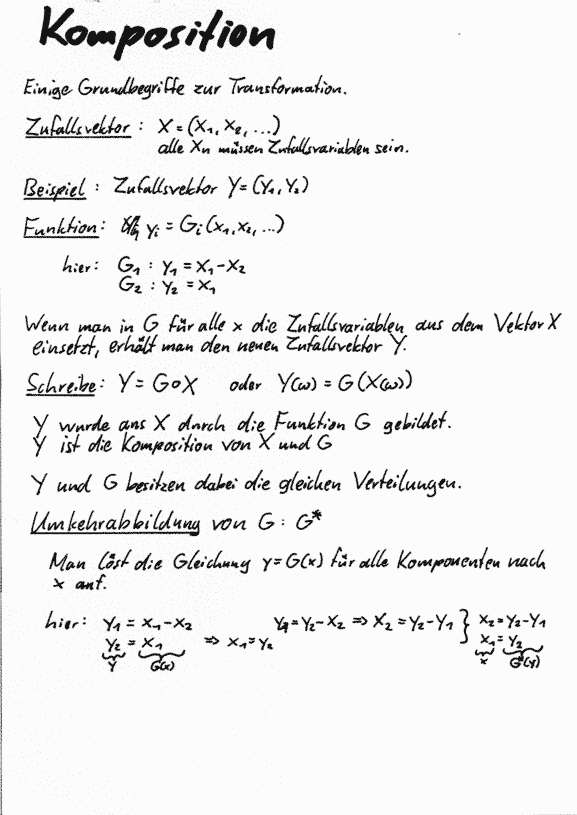 Komposition
Einige Grundbegriffe zur Transformation.
Zufallsvektor : X = (X₁, X₂, ...)
alle Xn müssen Zufallsvariablen sein.
Beispiel : Zufallsvektor Y = (Y₁, Y₂)
Funktion : yᵢ = Gᵢ(x₁, x₂, ...)
hier: G₁ : y₁ = x₁ - x₂
G₂ : y₂ = x₁
Wenn man in G für alle x die Zufallsvariablen aus dem Vektor X
einsetzt, erhält man den neuen Zufallsvektor Y.
Schreibe : Y = G∘X oder Y(ω) = G(X(ω))
Y wurde aus X durch die Funktion G gebildet.
Y ist die Komposition von X und G
Y und G besitzen dabei die gleichen Verteilungen.
Umkehrabbildung von G : G*
Man löst die Gleichung y = G(x) für alle Komponenten nach
x auf.
hier: y₁ = x₁ - x₂ y₁ = y₂ - x₂ ⇒ x₂ = y₂ - y₁ } x₂ = y₂ - y₁
y₂ = x₁ ⇒ x₁ = y₂ x₁ = y₂
y G(x) x G*(y)